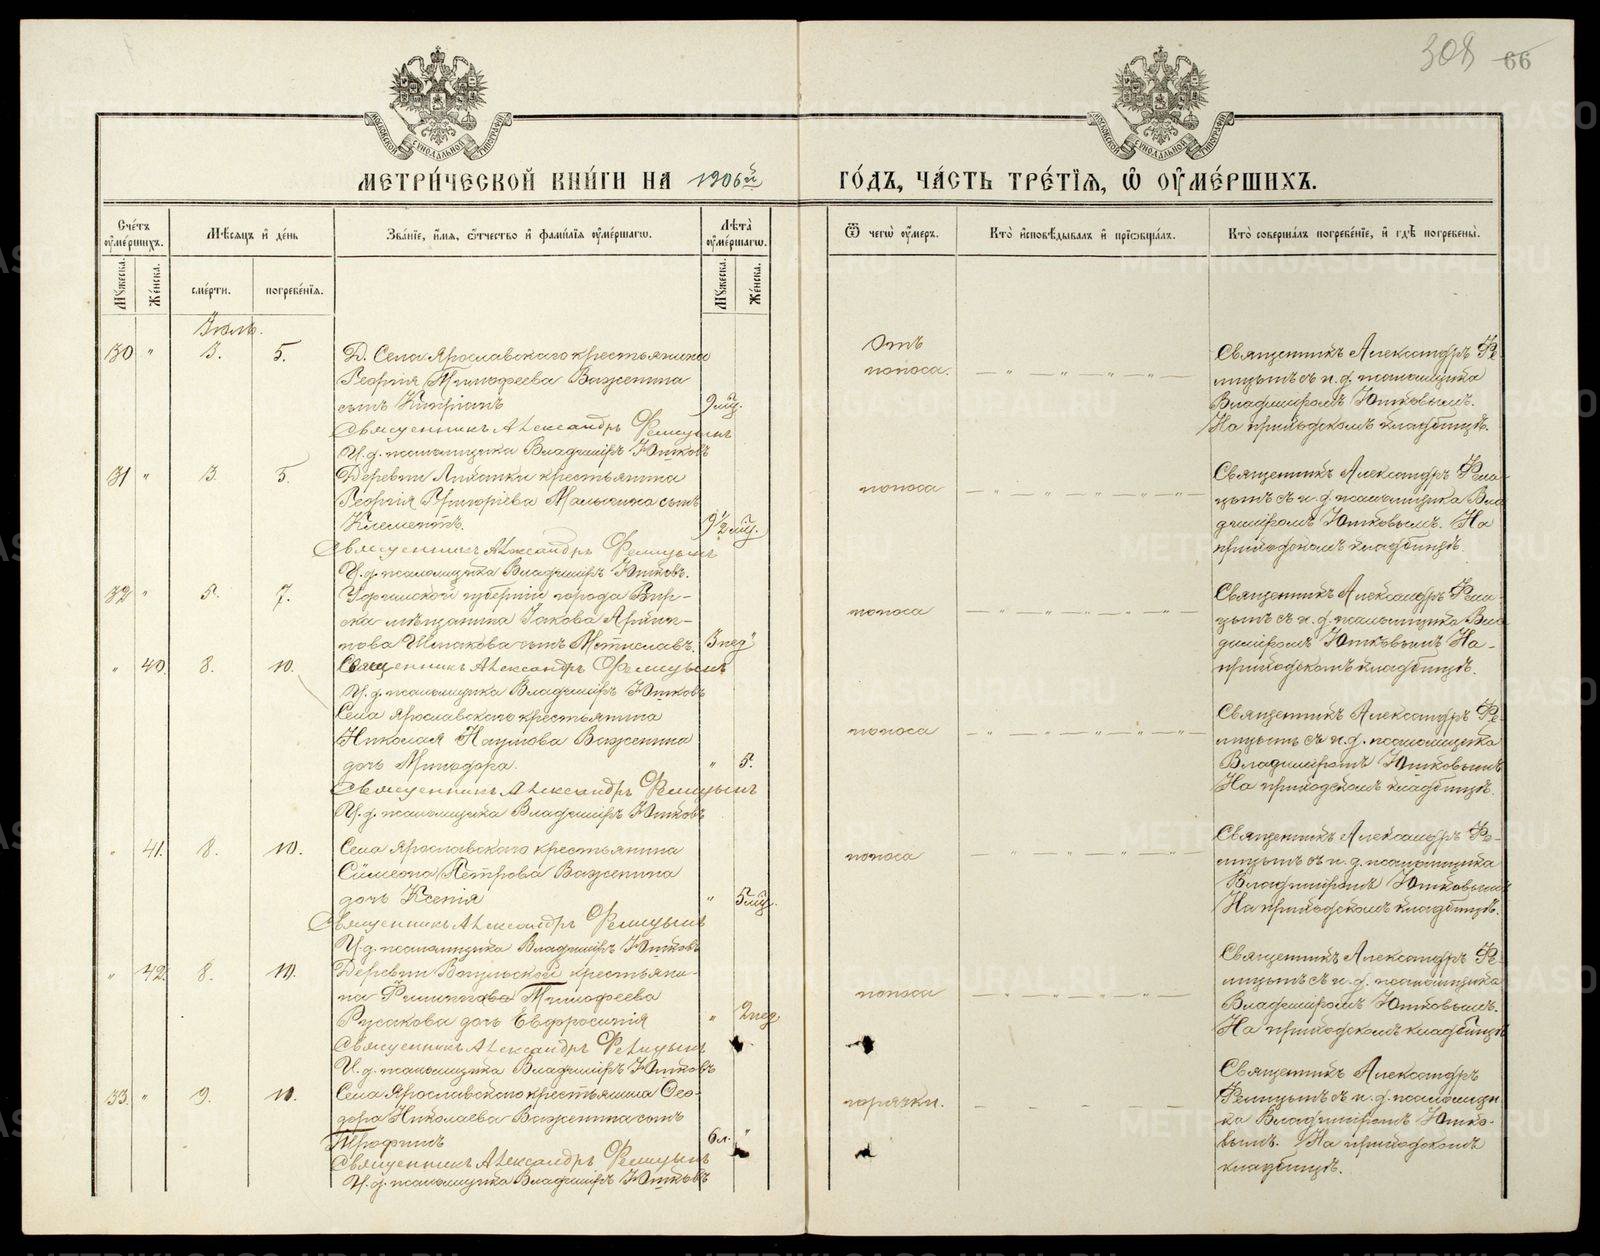 308 66
МЕТРИ́ЧЕСКОЙ КНИ́ГИ НА 1906й
ГО́ДЪ, ЧА́СТЬ ТРЕ́ТІЯ, Ѡ҆ ОУ҆МЕ́РШИХЪ.
Сче́тъ оу҆ме́ршихъ.
Мѣ́сяцъ и҆ де́нь
Зва́ніе, и҆́мя, ѻ҆́тчество и҆ фами́лія оу҆ме́ршагѡ.
Лѣ́та оу҆ме́ршагѡ.
Ѿ чегѡ̀ оу҆́меръ.
Кто̀ и҆сповѣ́дывалъ и҆ прїѡбща́лъ.
Кто̀ соверша́лъ погребе́ніе, и҆ гдѣ̀ погребены̀.
Му́жеска.
Же́нска.
сме́рти.
погребе́нїя.
Му́жеска.
Же́нска.
Іюль.
30 " 3. 5. Д. Села Ярославскаго крестьянина
Георгія Тимофеева Важенина
сынъ Кипріанъ 9 мц.
Священникъ Александръ Фелицынъ
И. д. псаломщика Владиміръ Ютковъ
Отъ
поноса.
Священникъ Александръ Фе-
лицынъ съ и. д. псаломщика
Владиміромъ Ютковымъ.
На приходскомъ кладбищѣ.
31 " 3. 5. Деревни крестьянина
Георгія Григоріева сынъ
Климентъ. 9 1/2 мц.
Священникъ Александръ Фелицынъ
И. д. псаломщика Владиміръ Ютковъ.
поноса
Священникъ Александръ Фели-
цынъ съ и. д. псаломщика Вла-
диміромъ Ютковымъ. На
приходскомъ кладбищѣ.
32 " 5. 7. Уфимской губерніи города Бир-
ска мѣщанина Іакова
сынъ Мстиславъ. 3 нед "
Священникъ Александръ Фелицынъ
И. д. псаломщика Владиміръ Ютковъ
поноса
Священникъ Александръ Фели-
цынъ съ и. д. псаломщика Вла-
диміромъ Ютковымъ На
приходскомъ кладбищѣ.
" 40 8. 10.
Села Ярославскаго крестьянина
Николая Наумова Важенина
дочь Минодора. " 5.
Священникъ Александръ Фелицынъ
И. д. псаломщика Владиміръ Ютковъ
поноса
Священникъ Александръ Фе-
лицынъ съ и. д. псаломщика
Владиміромъ Ютковымъ
На приходскомъ кладбищѣ.
" 41. 8. 10. Села Ярославскаго крестьянина
Сѵмеона Петрова Важенина
дочь Ксенія " 5 мц.
Священникъ Александръ Фелицынъ
И. д. псаломщика Владиміръ Ютковъ
поноса
Священникъ Александръ Фе-
лицынъ съ и. д. псаломщика
Владиміромъ Ютковымъ
На приходскомъ кладбищѣ.
" 42 8. 10. Деревни крестьяни-
на Тимофеева
Русакова дочь Евфросинія " 2 нед
Священникъ Александръ Фелицынъ
И. д. псаломщика Владиміръ Ютковъ
поноса
Священникъ Александръ Фе-
лицынъ съ и. д. псаломщика
Владиміромъ Ютковымъ.
На приходскомъ кладбищѣ
33. " 9. 11. Села Ярославскаго крестьянина Ѳео-
дора Николаева Важенина сынъ
Трофимъ 6 л. "
Священникъ Александръ Фелицынъ
И. д. псаломщика Владиміръ Ютковъ
горячки.
Священникъ Александръ
Фелицынъ съ и. д. псаломщи-
ка Владиміромъ Ютко-
вымъ. На приходскомъ
кладбищѣ.
METRIKI.GASO-URAL.RU